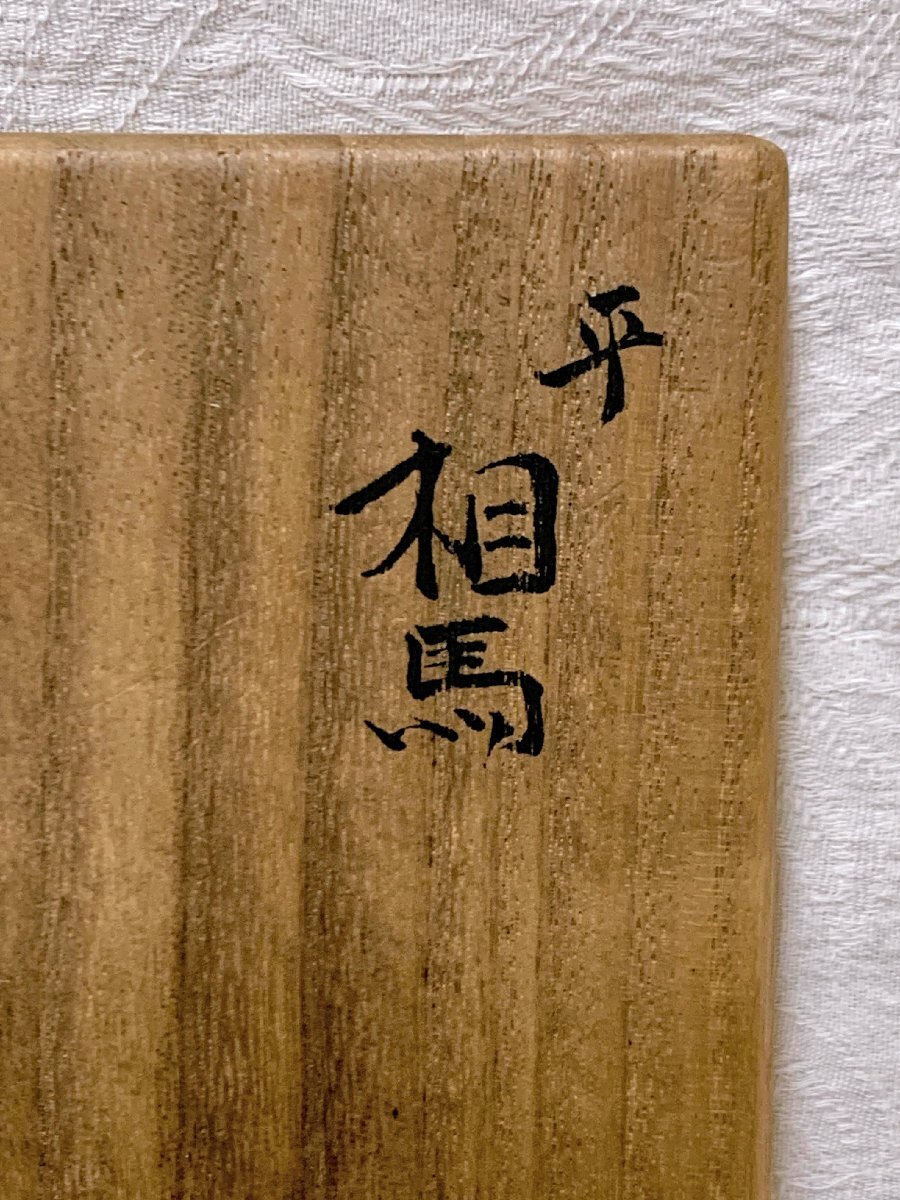 平
相馬